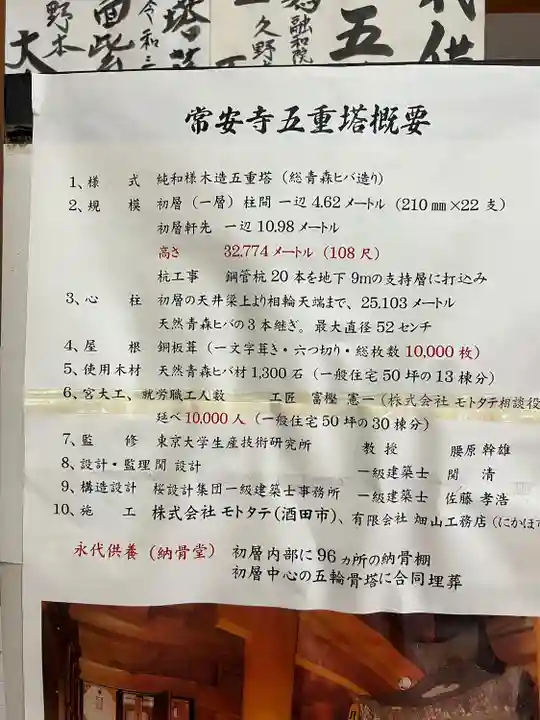 野本
令和三
融和院
久野
常安寺五重塔概要
1、様　式　純和様木造五重塔（総青森ヒバ造り）
2、規　模　初層（一層）柱間 一辺 4.62 メートル（210 ㎜×22 支）
初層軒先 一辺 10.98 メートル
高さ　32,774 メートル（108 尺）
杭工事　鋼管杭 20 本を地下 9mの支持層に打込み
3、心　柱　初層の天井梁上より相輪天端まで、25.103 メートル
天然青森ヒバの 3 本継ぎ。最大直径 52 センチ
4、屋　根　銅板葺（一文字葺き・六つ切り・総枚数 10,000 枚）
5、使用木材　天然青森ヒバ材 1,300 石（一般住宅 50 坪の 13 棟分）
6、宮大工、就労職工人数　工匠　富樫 憲一（株式会社 モトタテ相談役
延べ 10,000 人（一般住宅 50 坪の 30 棟分）
7、監　修　東京大学生産技術研究所　教　授　腰原 幹雄
8、設計・監理 関 設計　一級建築士　関　清
9、構造設計　桜設計集団一級建築士事務所　一級建築士　佐藤 孝浩
10、施　工　株式会社 モトタテ(酒田市)、有限会社 畑山工務店（にかほ
永代供養（納骨堂）　初層内部に 96 ヵ所の納骨棚
初層中心の五輪骨塔に合同埋葬